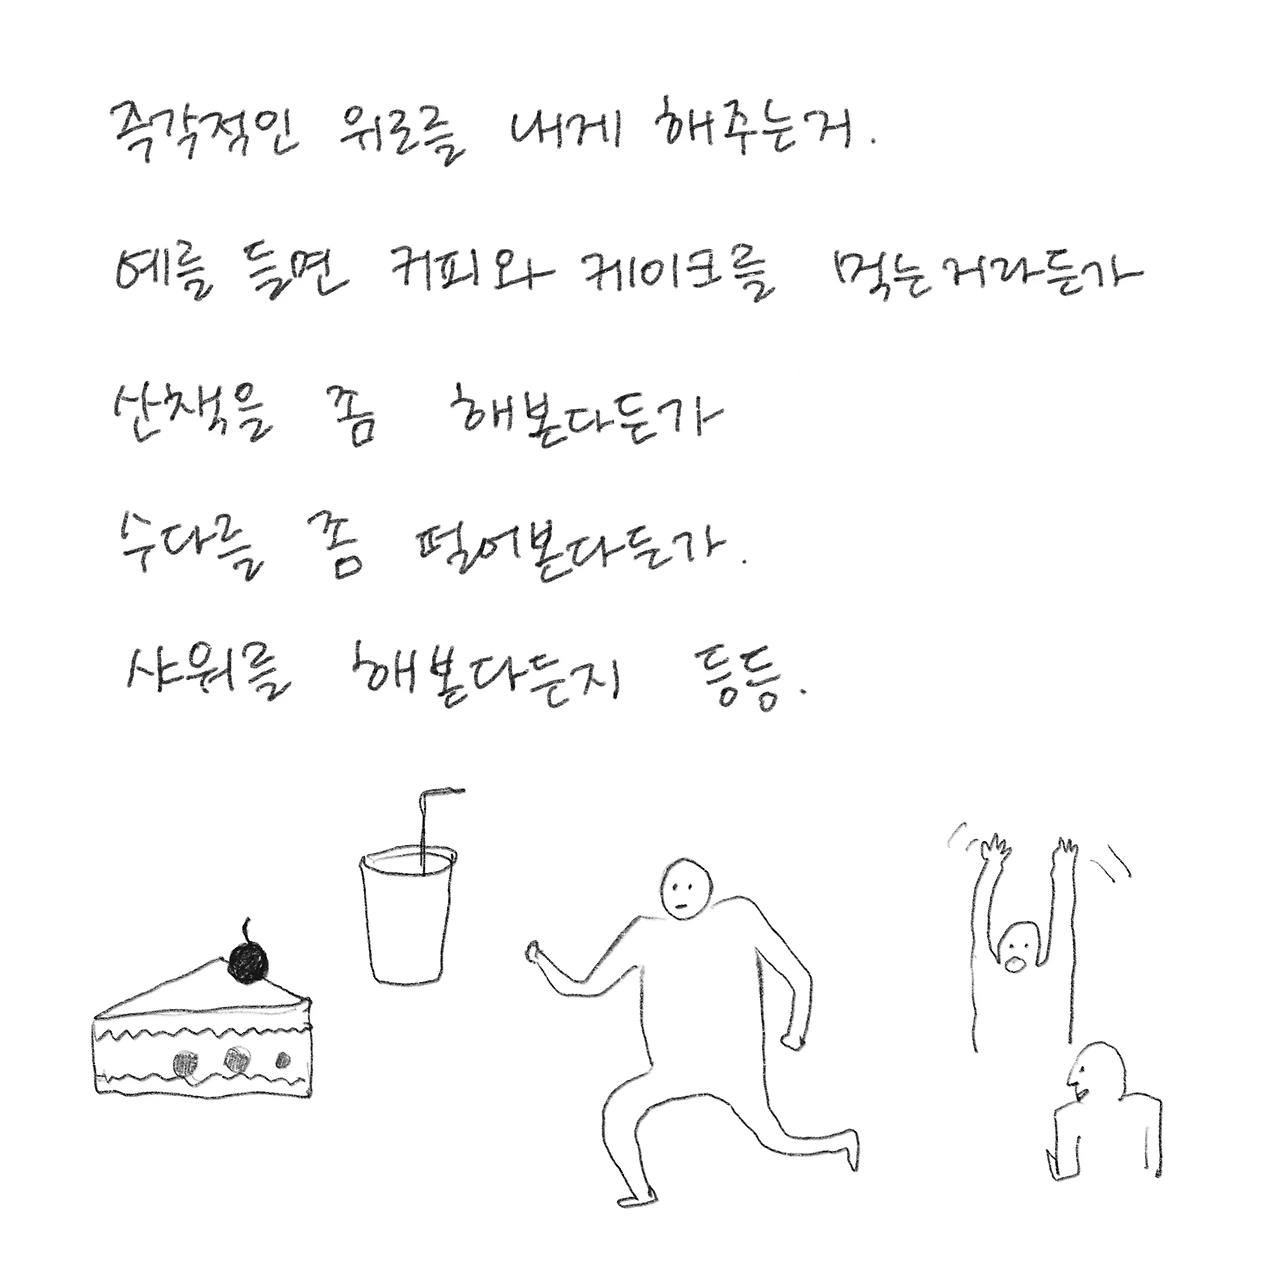 즉각적인 위로를 내게 해주는거.
예를 들면 커피와 케이크를 먹는거라든가
산책을 좀 해본다든가
수다를 좀 떨어본다든가.
샤워를 해본다든지 등등.